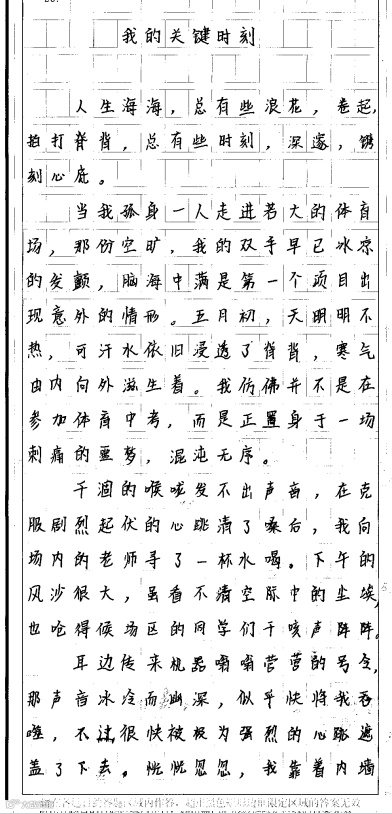 我的关键时刻
人生海海，总有些浪花，卷起，
拍打脊背，总有些时刻，深邃，镌
刻心底。
当我孤身一人走进若大的体育
场，那份空旷，我的双手早已冰凉
的发颤，脑海中满是第一个项目出
现意外的情形。五月初，天明明不
热，可汗水依旧浸透了脊背，寒气
由内向外滋生着。我仿佛并不是在
参加体育中考，而是正置身于一场
刺痛的噩梦，混沌无序。
干涸的喉咙发不出声音，在克
服剧烈起伏的心跳清了嗓后，我向
场内的老师寻了一杯水喝。下午的
风沙很大，虽看不清空际中的尘埃，
也呛得候场区的同学们干咳声阵阵。
耳边传来机器嗡嗡营营的号令，
那声音冰冷而幽深，似乎快将我吞
噬，不过很快被极为强烈的心跳遮
盖了下去。恍恍忽忽，我靠着内墙
限定区域的答案无效